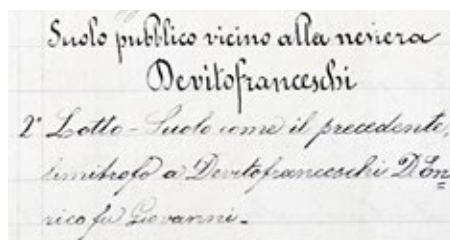 Suolo pubblico vicino alla neviera
Devitofranceschi
2° Lotto - Suolo come il precedente,
limitrofo a Devitofranceschi D. En
rico fu Giovanni.